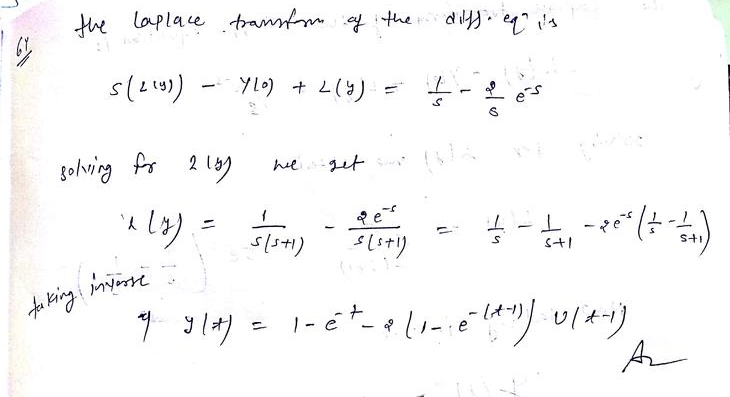 64
the Laplace transform of the diff. eqn is
s(L(y)) - y(0) + L(y) = 1/s - 2/s e^-s
solving for L(y) we get
L(y) = 1/s(s+1) - 2e^-s/s(s+1) = 1/s - 1/s+1 - 2e^-s (1/s - 1/s+1)
taking inverse
y(t) = 1 - e^-t - 2(1 - e^-(t-1)) U(t-1)